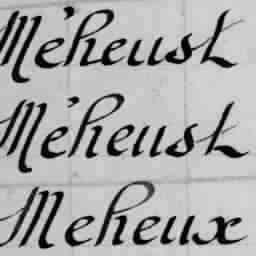 Méheust
Méheust
Meheux